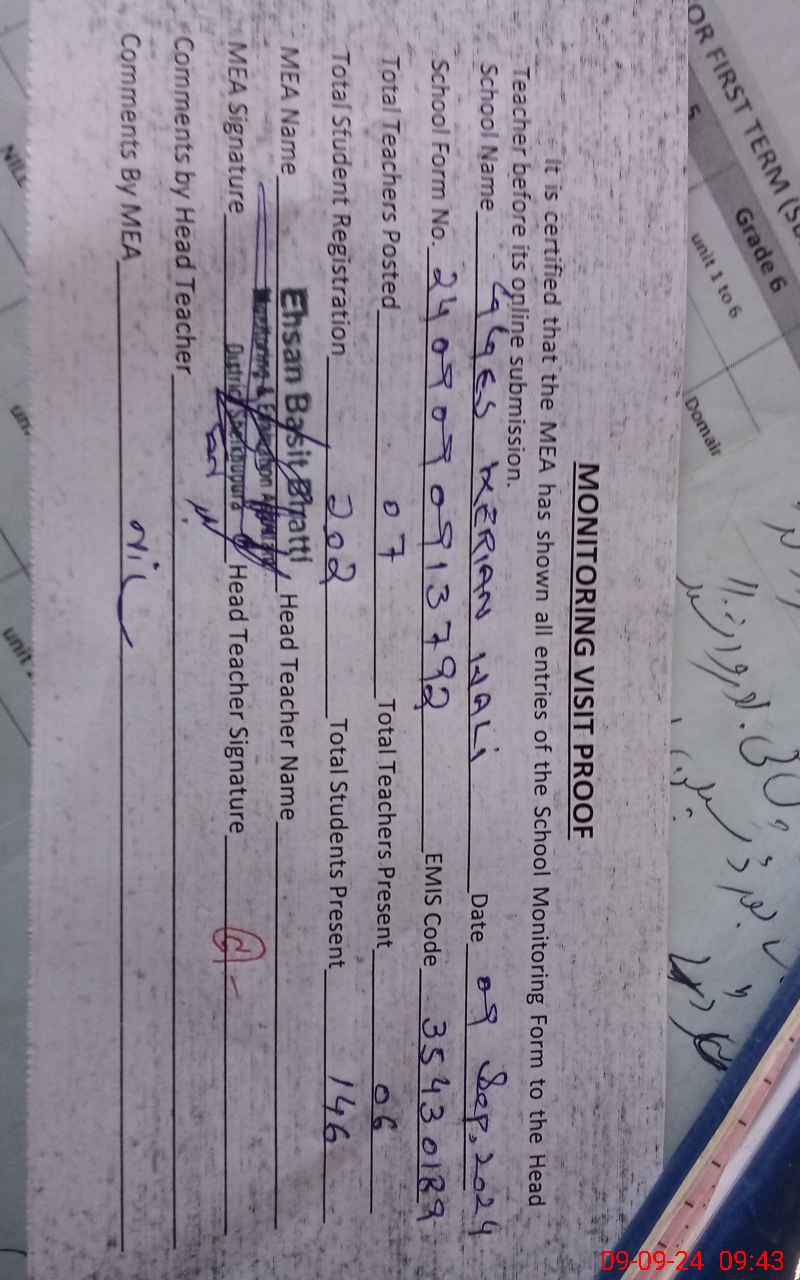 MONITORING VISIT PROOF
It is certified that the MEA has shown all entries of the School Monitoring Form to the Head
Teacher before its online submission.
School Name GGES KERIAN WALI Date 09 Sep, 2024
School Form No. 2409090913792 EMIS Code 35430189
Total Teachers Posted 07 Total Teachers Present 06
Total Student Registration 202 Total Students Present 146
MEA Name Ehsan Basit Bhatti Head Teacher Name
Monitoring & Evaluation
MEA Signature District Sheikhupura Head Teacher Signature
Comments by Head Teacher
Comments By MEA Nil
OR FIRST TERM (S
5
Grade 6
unit 1 to 6
Domain
NILL
unit
09-09-24 09:43